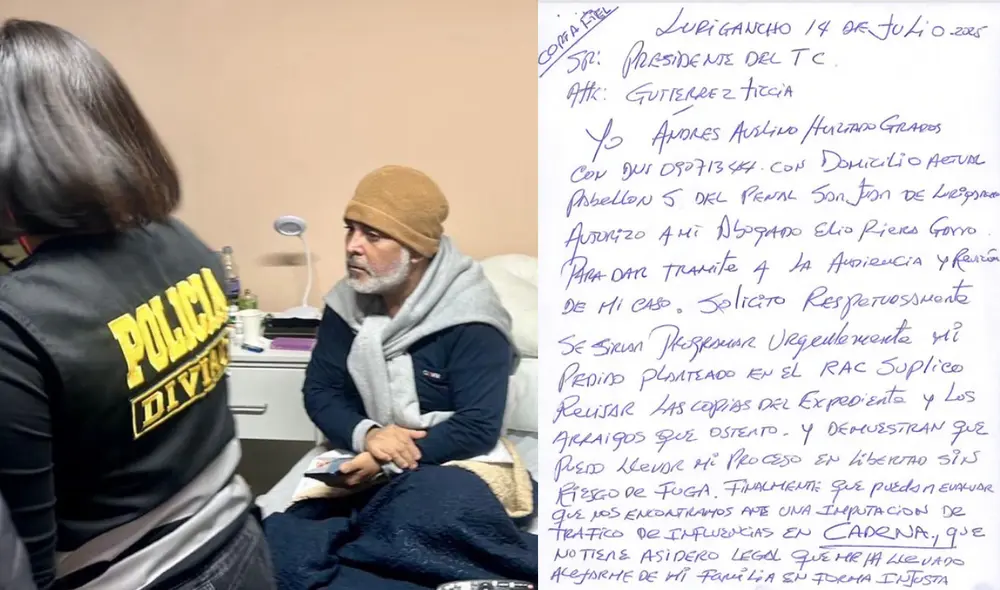 POLICIA
DIVIS
COPIA FIEL
LURIGANCHO 14 DE JULIO. 2025
SR: PRESIDENTE DEL TC.
Attc: GUTIERREZ ticcia
Yo ANDRES AVELINO HURTADO GRADOS
CON DNI CON DOMICILIO ACTUAL
PABELLON 5 DEL PENAL SAN JUAN DE LURIGANCHO
AUTORIZO A MI ABOGADO ELIO RIERA GARRO.
PARA DAR TRAMITE A LA AUDIENCIA Y REVISIÓN
DE MI CASO. SOLICITO RESPETUOSAMENTE
SE SIRVAN PROGRAMAR URGENTEMENTE MI
PEDIDO PLANTEADO EN EL RAC SUPLICO
REVISAR LAS COPIAS DEL EXPEDIENTE Y LOS
ARRAIGOS QUE OSTENTO. Y DEMUESTRAN QUE
PUEDO LLEVAR MI PROCESO EN LIBERTAD SIN
RIESGO DE FUGA. FINALMENTE QUE PUEDAN EVALUAR
QUE NOS ENCONTRAMOS ANTE UNA IMPUTACION DE
TRAFICO DE INFLUENCIAS EN CADENA, QUE
NO TIENE ASIDERO LEGAL QUE ME HA LLEVADO
ALEJARME DE MI FAMILIA EN FORMA INJUSTA